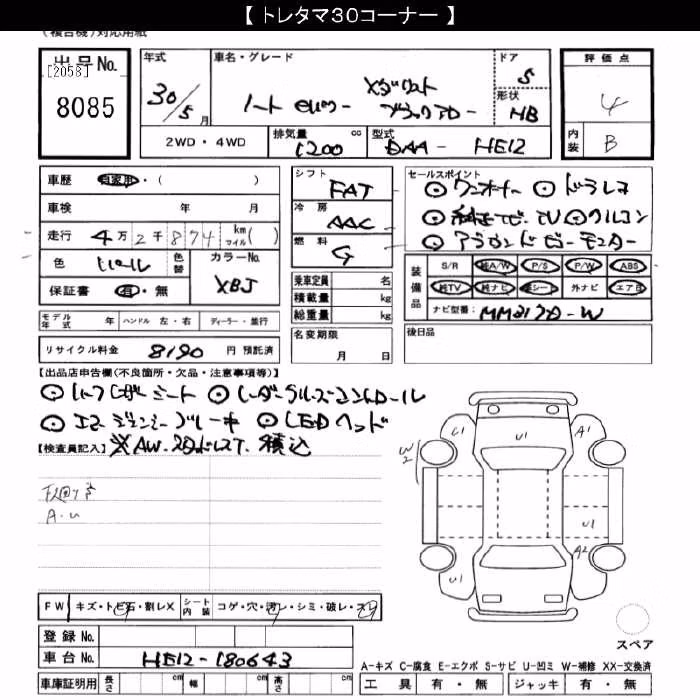 【 トレタマ30コーナー 】
(複合機)対応用紙
出品No.
[2058]
8085
年式
30/5 月
車名・グレード
ノート eパワー Xダウト ブラックアロー
ドア
5
形状
HB
2WD・4WD
排気量
1200 cc
型式
DAA - HE12
評価点
4
内装
B
車歴 自家用・( )
車検 年 月
走行 4万2千874 km マイル( )
色
色替
カラーNo.
XBJ
保証書 有・無
シフト
FAT
冷房
AAC
燃料
G
セールスポイント
ワンオーナー ドラレコ
純正ナビ TV クルコン
アラウンドビューモニター
装備品
S/R 純A/W P/S P/W ABS
純TV 純ナビ 革シート 外ナビ エアB
ナビ型番: MM317D-W
乗車定員 名
積載量 kg
総重量 kg
モデル年式 年 ハンドル 左・右 ディーラー・並行
名変期限
月 日
後日品
リサイクル料金 8190 円 預託済
【出品店申告欄(不良箇所・欠品・注意事項等)】
ハーフレザーシート
エマージェンシーブレーキ LEDヘッド
【検査員記入】 ※AW 積込
下廻りサ
A.U
U1
U1
A1
W2
U1
A2
U1
FW キズ・トビ石・割レX シート内装 コゲ・穴・汚レ・シミ・破レ・スレ
登録No.
車台No. HE12-180643
車庫証明用 長さ cm 幅 cm 高さ cm
スペア
A-キズ C-腐食 E-エクボ S-サビ U-凹ミ W-補修 XX-交換済
工具 有・無 ジャッキ 有・無